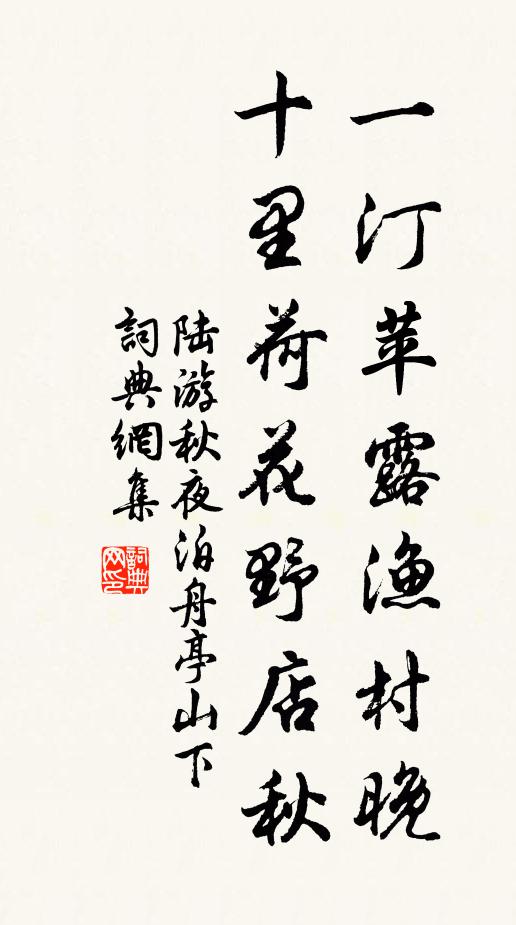 一汀苹露渔村晚
十里荷花野店秋
陆游秋夜泊舟亭山下
詞典網集
詞典网印